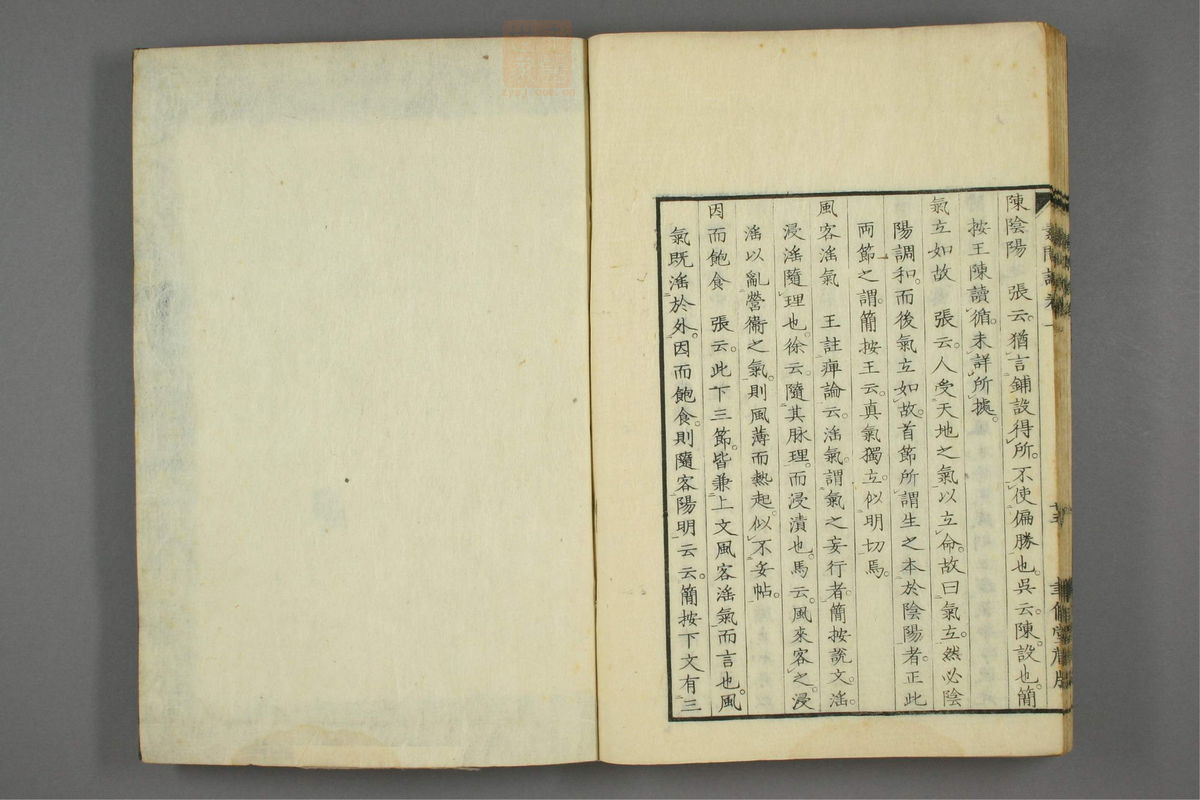 陳陰陽　張云。猶言鋪設得所。不使偏勝也。吳云。陳。設也。簡
按王陳讀循。未詳所據。
氣立如故　張云。人受天地之氣以立命。故曰氣立。然必陰
陽調和。而後氣立如故。首節所謂生之本。於陰陽者。正此
兩節之謂。簡按王云。真氣獨立。似明切焉。
風客淫氣　王註痺論云。淫氣。謂氣之妄行者。簡按說文。淫。
浸淫隨理也。徐云。隨其脉理。而浸漬也。馬云。風來客之。浸
淫以亂營衞之氣。則風薄而熱起。似不妥帖。
因而飽食　張云。此下三節。皆兼上文風客淫氣而言也。風
氣既淫於外。因而飽食。則隨客陽明云云。簡按下文有三